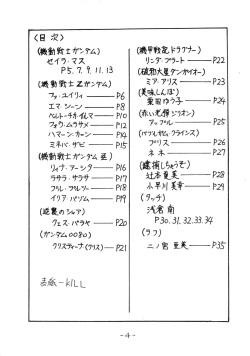 〈目次〉
(機動戦士ガンダム)
セイラ・マス
P5.7.9.11.13
(機動戦士Zガンダム)
フォ・ユイリィ — P6
エマ・シーン — P8
ベルトーチカ・イルマ — P10
フォウ・ムラサメ — P12
ハマーン・カーン — P14
ミネバ・ザビ — P15
(機動戦士ガンダムZZ)
リィナ・アーシタ — P16
ラサラ・サラサ — P17
プル・プルツー — P18
イリア・パゾム — P19
(逆襲のシャア)
クェス・パラヤ — P20
(ガンダム0080)
クリスティーナ(クリス) — P21
(機甲戦記ドラグナー)
リンダ・プラート — P22
(破邪大星ダンガイオー)
ミア・アリス — P23
(美味しんぼ)
栗田ゆう子 — P24
(赤い光弾ジリオン)
アップル — P25
プリス — P26
ネネ — P27
(逮捕しちゃうぞ)
辻本夏実 — P28
小早川美幸 — P29
(タッチ)
浅倉南
P30.31.32.33.34
(ラフ)
二ノ宮亜美 — P35
表紙-KILL
-4-